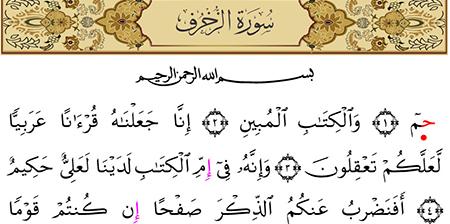 سُورَةُ الزُّخْرُفِ
بِسْمِ اللهِ الرَّحْمَنِ الرَّحِيمِ
حمٓ ﴿١﴾ وَالْكِتَٰبِ الْمُبِينِ ﴿٢﴾ إِنَّا جَعَلْنَٰهُ قُرْءَٰنًا عَرَبِيًّا
لَّعَلَّكُمْ تَعْقِلُونَ ﴿٣﴾ وَإِنَّهُۥ فِىٓ إِمِّ الْكِتَٰبِ لَدَيْنَا لَعَلِىٌّ حَكِيمٌ
﴿٤﴾ أَفَنَضْرِبُ عَنكُمُ الذِّكْرَ صَفْحًا إِن كُنتُمْ قَوْمًا